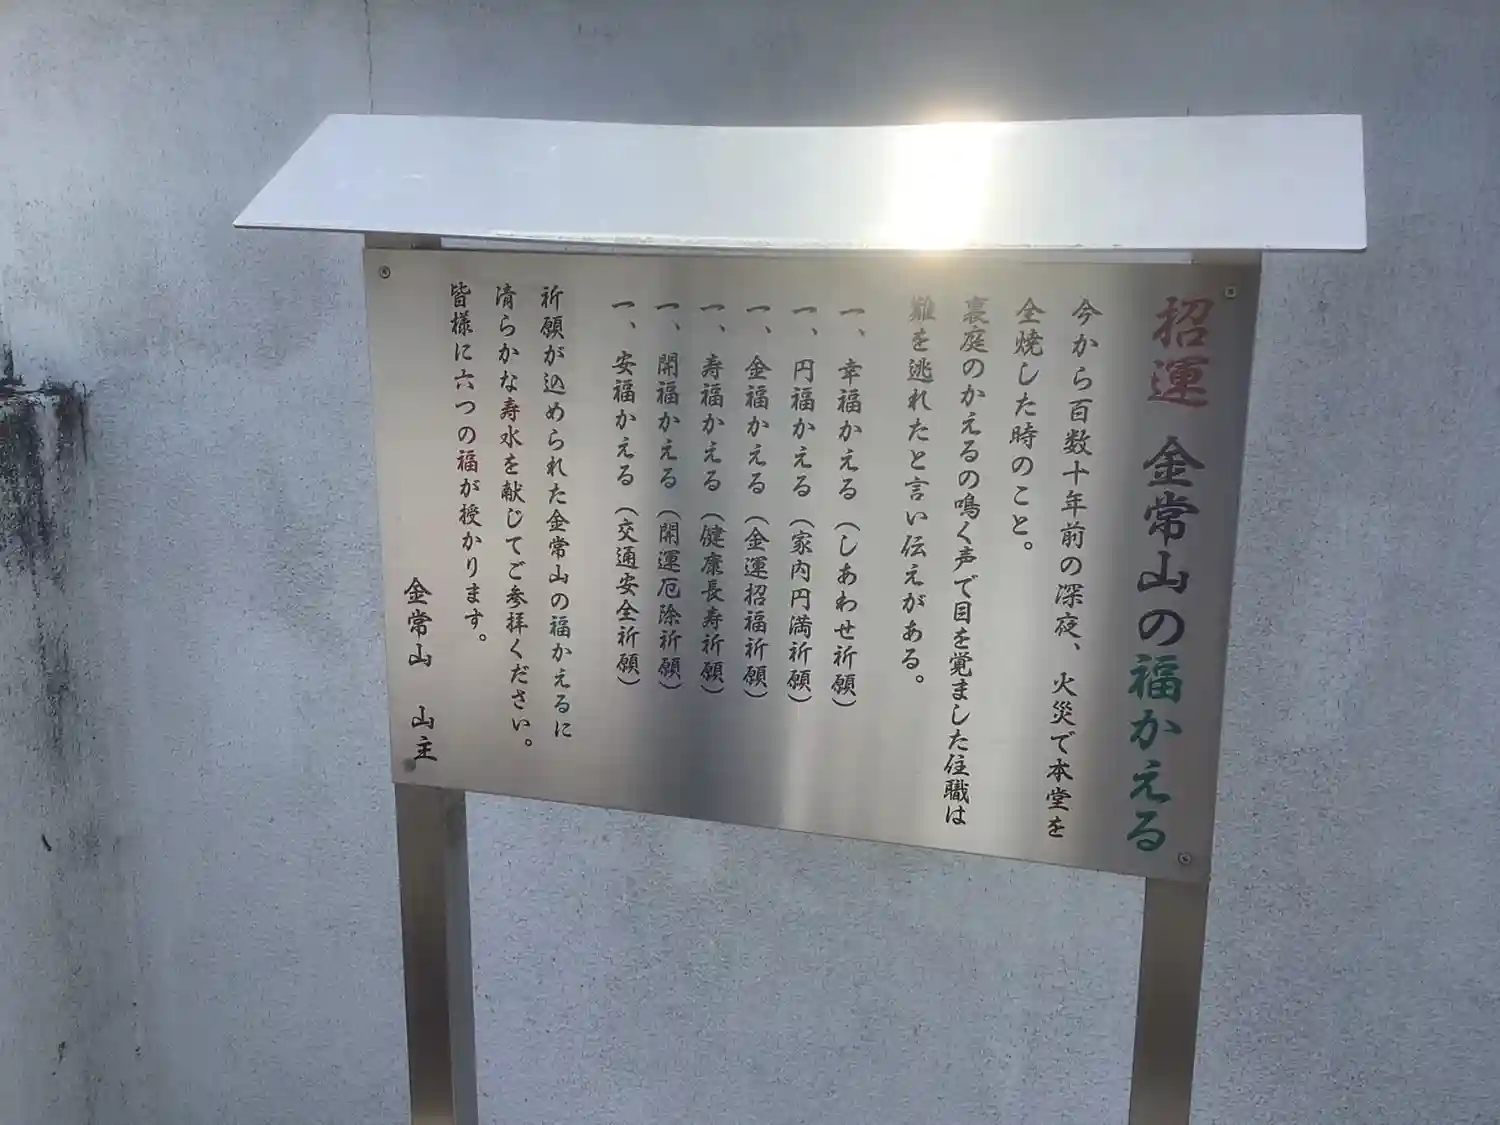 招運 金常山の福かえる
今から百数十年前の深夜、火災で本堂を
全焼した時のこと。
裏庭のかえるの鳴く声で目を覚ました住職は
難を逃れたと言い伝えがある。
一、幸福かえる（しあわせ祈願）
一、円福かえる（家内円満祈願）
一、金福かえる（金運招福祈願）
一、寿福かえる（健康長寿祈願）
一、開福かえる（開運厄除祈願）
一、安福かえる（交通安全祈願）
祈願が込められた金常山の福かえるに
清らかな寿水を献じてご参拝ください。
皆様に六つの福が授かります。
金常山 山主